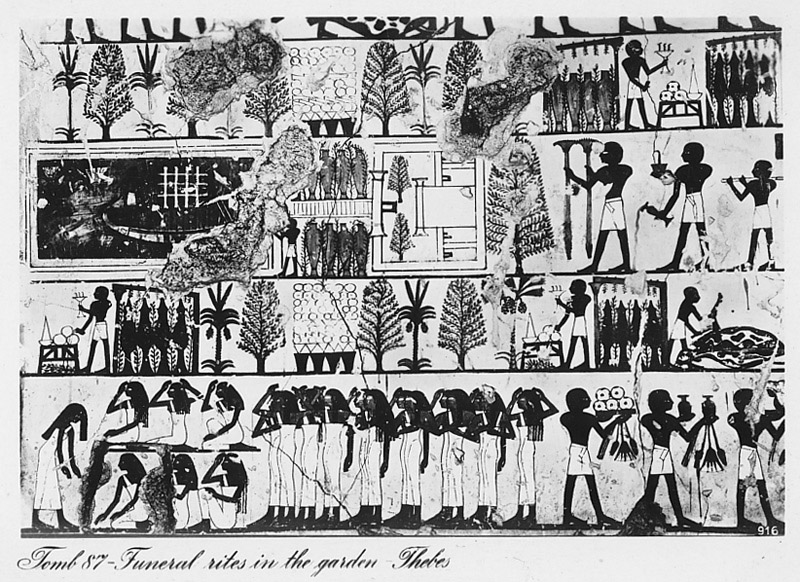 916
Tomb 87-Funeral rites in the garden-Thebes